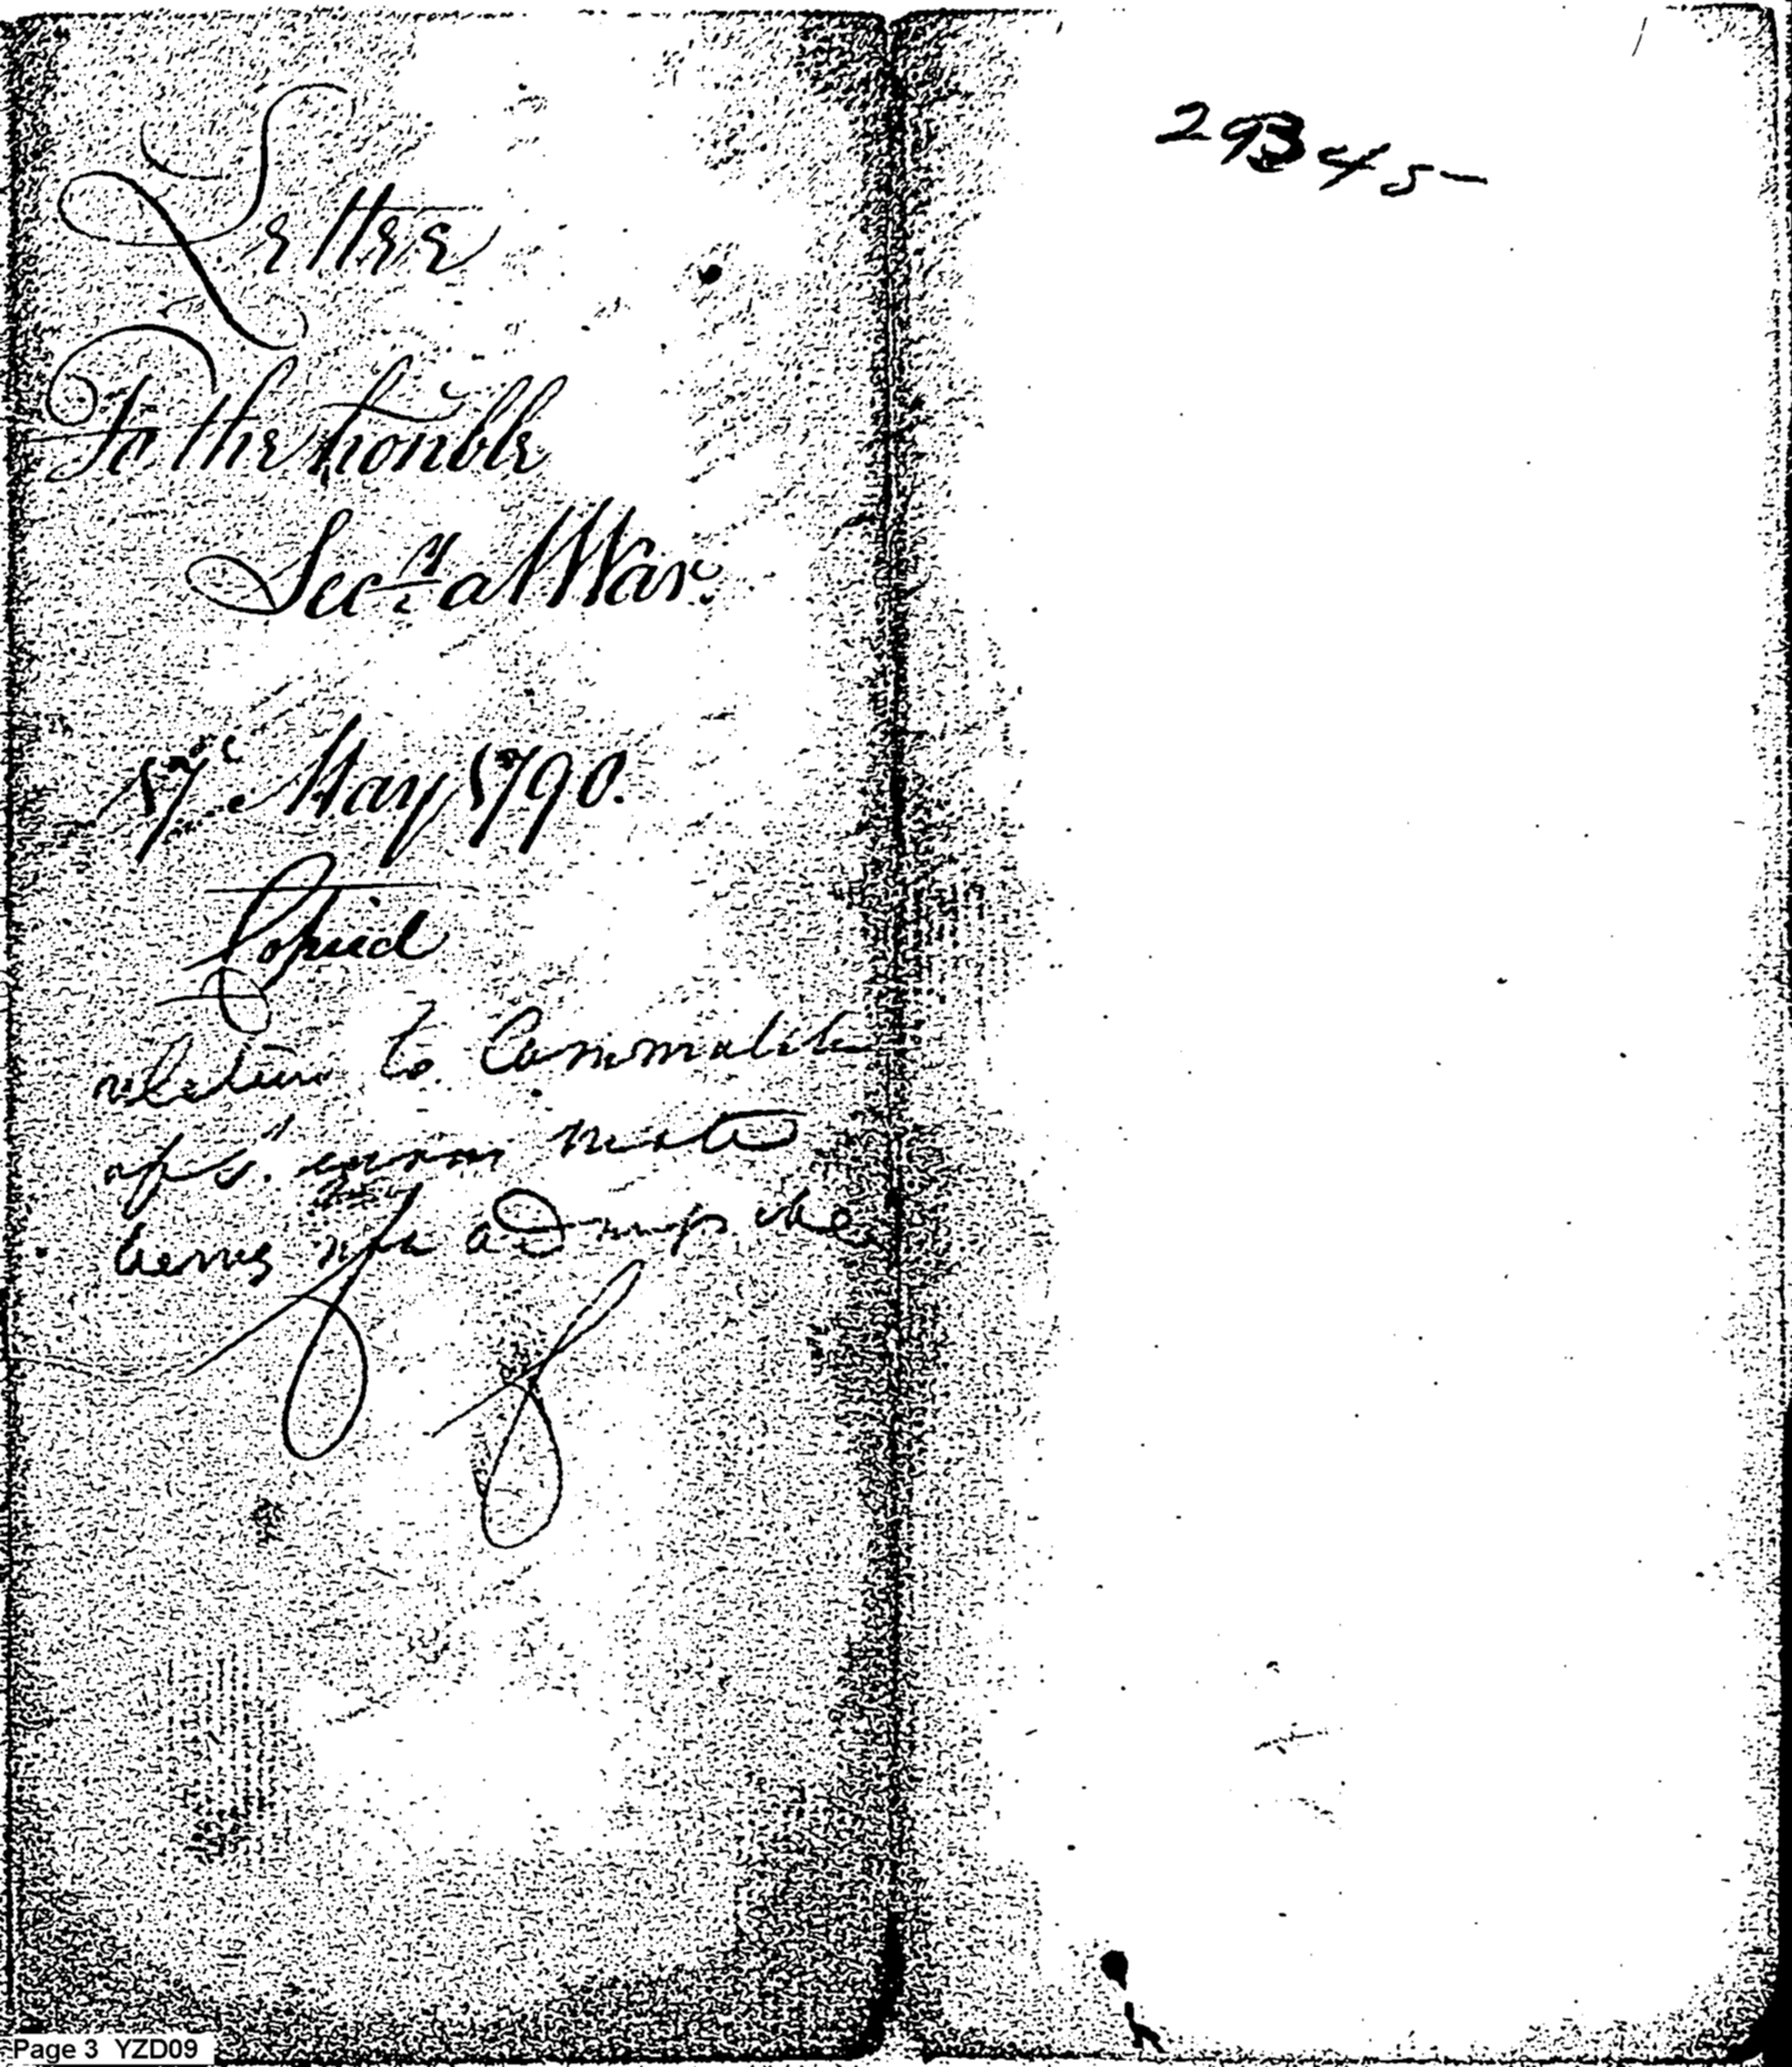 Letter
To the honble
Secry at War.
17th May 1790.
Copied
relative to Commutation
being not
29345
Page 3 YZD09